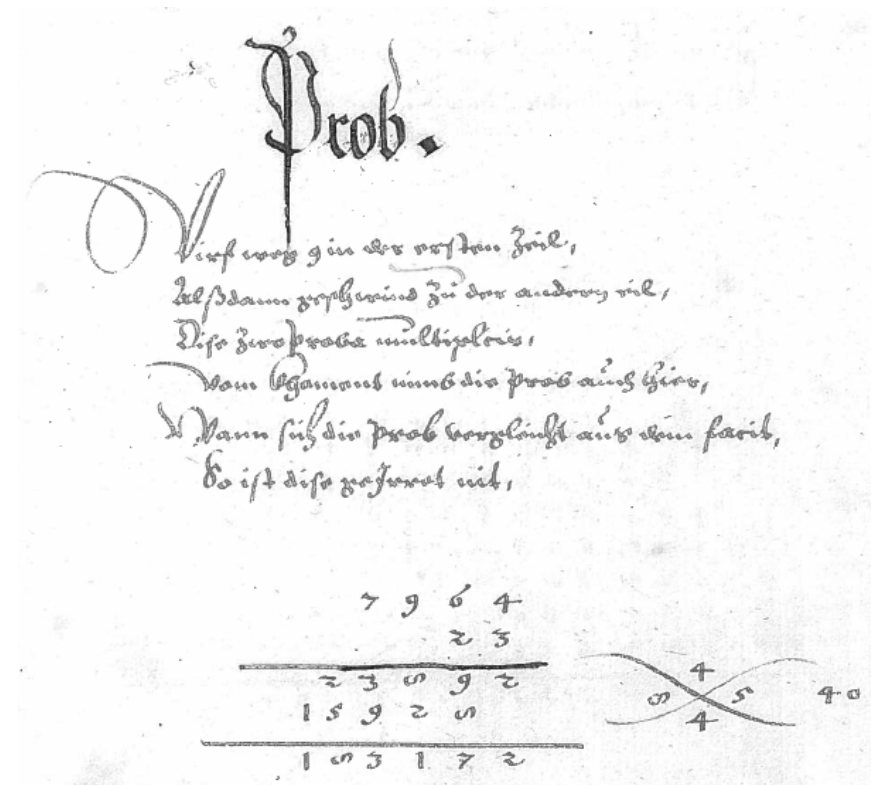 Prob.
Wirf weg 9 in der ersten Zeil,
Alßdann geschwind zu der andern eil,
Dise zwo Proba multiplcir,
Vom nimb die Prob auch hier,
Wann sich die Prob vergleicht aus dem facit,
So ist dise geIrret nit,
7 9 6 4
2 3
2 3 8 9 2
1 5 9 2 8
1 8 3 1 7 2
4
8 5 40
4